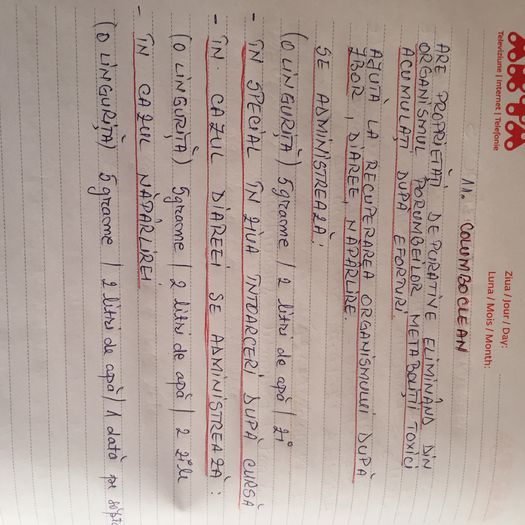 Televiziune | Internet | Telefonie
Ziua / Jour / Day:
Luna / Mois / Month:
11. COLUMBOCLEAN
ARE PROPRIETĂȚI DEPURATIVE ELIMINÂND DIN
ORGANISMUL PORUMBEILOR METABOLIȚI TOXICI
ACUMULAȚI DUPĂ EFORTURI.
AJUTĂ LA RECUPERAREA ORGANISMULUI DUPĂ
ZBOR, DIAREE, NĂPÂRLIRE.
SE ADMINISTREAZĂ:
(O LINGURIȚĂ) 5 grame / 2 litri de apă / zi
- ÎN SPECIAL ÎN ZIUA ÎNTOARCERI DUPĂ CURSĂ
- ÎN CAZUL DIAREEI SE ADMINISTREAZĂ:
(O LINGURIȚĂ) 5 grame / 2 litri de apă / 2 zile
- ÎN CAZUL NĂPÂRLIREI
(O LINGURIȚĂ) 5 grame / 2 litri de apă / 1 dată pe